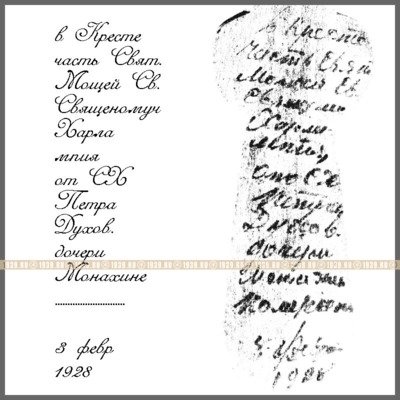 в Кресте
часть Свят.
Мощей Св.
Священомун
Харла
мпия
от СХ
Петра
Духов.
дочери
Монахине
..............................
3 февр
1928
в Кресте
часть Свят
Мощей Св.
Харла
мпия
от СХ
Петра
Духов.
дочери
Монахинь
1928
1939.RU